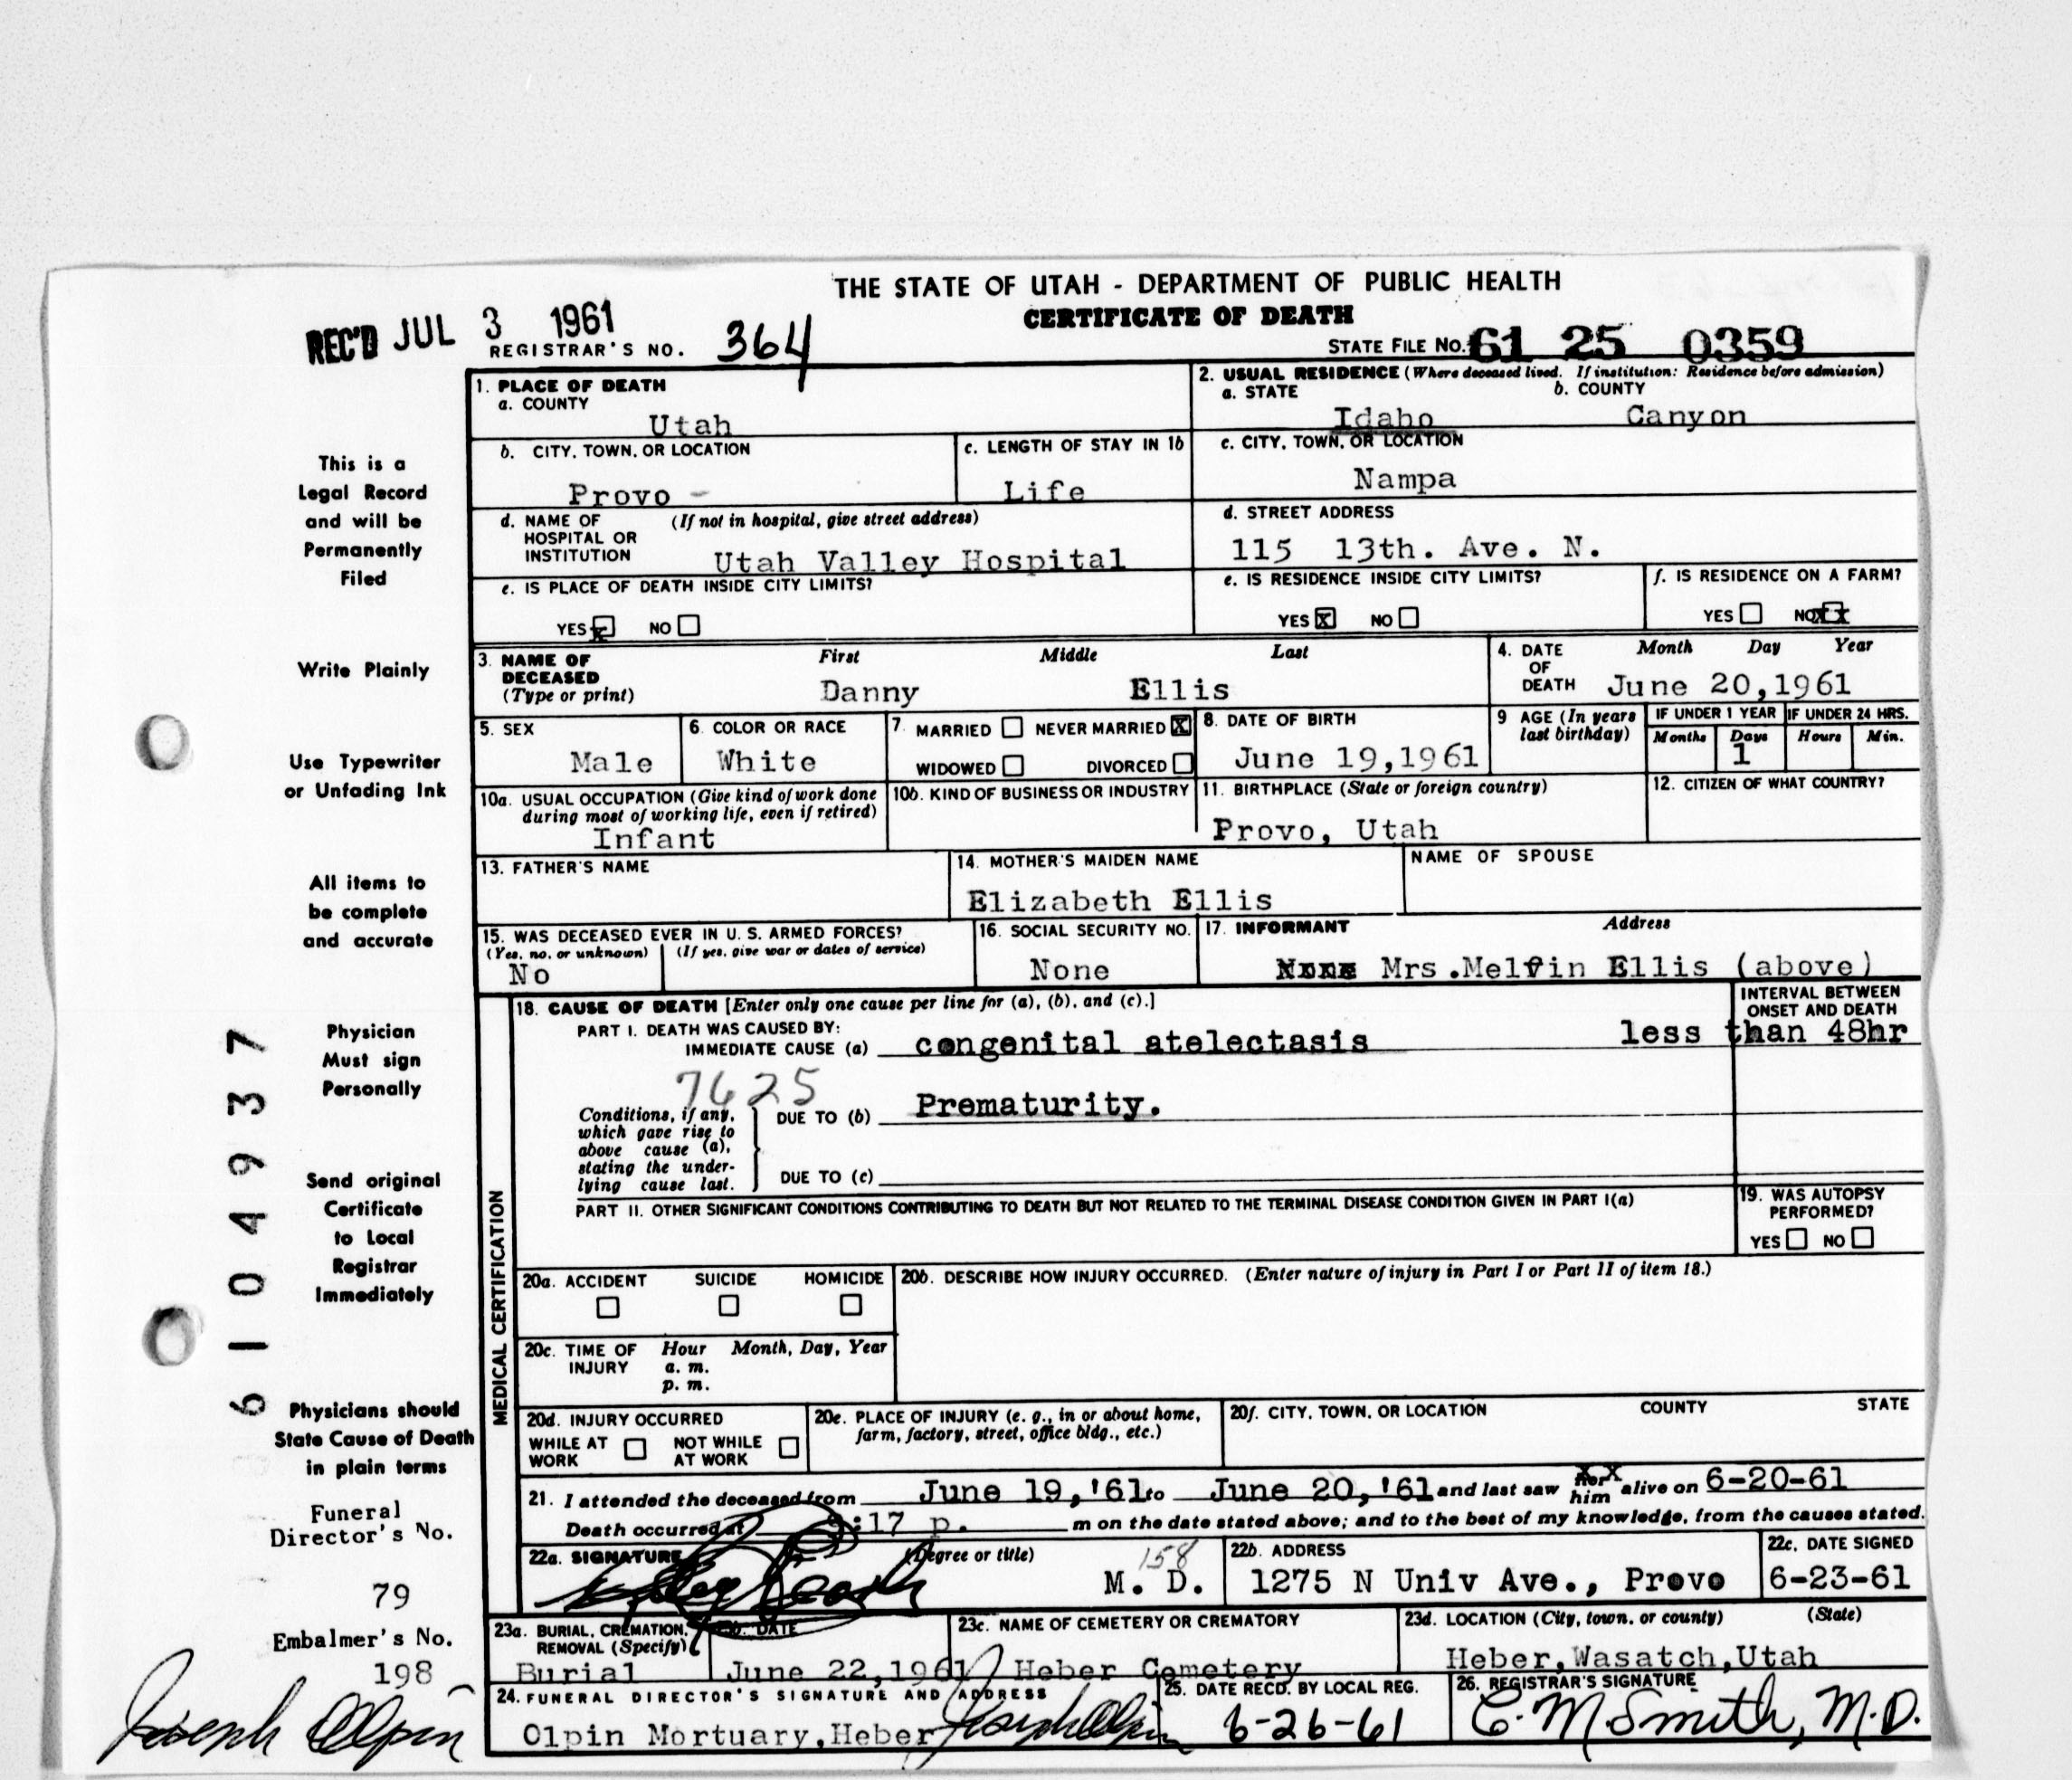 THE STATE OF UTAH - DEPARTMENT OF PUBLIC HEALTH
CERTIFICATE OF DEATH
REC'D JUL 3 1961
REGISTRAR'S NO. 364
STATE FILE NO. 61 25 0359
1. PLACE OF DEATH
a. COUNTY
Utah
2. USUAL RESIDENCE (Where deceased lived. If institution: Residence before admission)
a. STATE b. COUNTY
Idaho Canyon
b. CITY, TOWN, OR LOCATION
Provo -
c. LENGTH OF STAY IN 1b
Life
c. CITY, TOWN, OR LOCATION
Nampa
d. NAME OF HOSPITAL OR INSTITUTION (If not in hospital, give street address)
Utah Valley Hospital
d. STREET ADDRESS
115 13th. Ave. N.
e. IS PLACE OF DEATH INSIDE CITY LIMITS?
YES x NO
e. IS RESIDENCE INSIDE CITY LIMITS?
YES X NO
f. IS RESIDENCE ON A FARM?
YES NO XX
3. NAME OF DECEASED (Type or print)
First Middle Last
Danny Ellis
4. DATE OF DEATH Month Day Year
June 20,1961
5. SEX
Male
6. COLOR OR RACE
White
7. MARRIED NEVER MARRIED X
WIDOWED DIVORCED
8. DATE OF BIRTH
June 19,1961
9 AGE (In years last birthday)
IF UNDER 1 YEAR IF UNDER 24 HRS.
Months Days Hours Min.
1
10a. USUAL OCCUPATION (Give kind of work done during most of working life, even if retired)
Infant
10b. KIND OF BUSINESS OR INDUSTRY
11. BIRTHPLACE (State or foreign country)
Provo, Utah
12. CITIZEN OF WHAT COUNTRY?
13. FATHER'S NAME
14. MOTHER'S MAIDEN NAME
Elizabeth Ellis
NAME OF SPOUSE
15. WAS DECEASED EVER IN U. S. ARMED FORCES?
(Yes, no, or unknown) (If yes, give war or dates of service)
No
16. SOCIAL SECURITY NO.
None
17. INFORMANT Address
Mrs.Melvin Ellis (above)
MEDICAL CERTIFICATION
18. CAUSE OF DEATH [Enter only one cause per line for (a), (b), and (c).]
INTERVAL BETWEEN ONSET AND DEATH
PART I. DEATH WAS CAUSED BY:
IMMEDIATE CAUSE (a) congenital atelectasis less than 48hr
7625
Conditions, if any, which gave rise to above cause (a), stating the underlying cause last.
DUE TO (b) Prematurity.
DUE TO (c)
PART II. OTHER SIGNIFICANT CONDITIONS CONTRIBUTING TO DEATH BUT NOT RELATED TO THE TERMINAL DISEASE CONDITION GIVEN IN PART I(a)
19. WAS AUTOPSY PERFORMED?
YES NO
20a. ACCIDENT SUICIDE HOMICIDE
20b. DESCRIBE HOW INJURY OCCURRED. (Enter nature of injury in Part I or Part II of item 18.)
20c. TIME OF INJURY Hour Month, Day, Year
a. m.
p. m.
20d. INJURY OCCURRED
WHILE AT WORK NOT WHILE AT WORK
20e. PLACE OF INJURY (e. g., in or about home, farm, factory, street, office bldg., etc.)
20f. CITY, TOWN, OR LOCATION COUNTY STATE
21. I attended the deceased from June 19,'61 to June 20,'61 and last saw her him alive on 6-20-61
Death occurred at :17 p. m on the date stated above; and to the best of my knowledge, from the causes stated.
22a. SIGNATURE (Degree or title)
158
M. D.
22b. ADDRESS
1275 N Univ Ave., Provo
22c. DATE SIGNED
6-23-61
23a. BURIAL, CREMATION, REMOVAL (Specify)
Burial
23b. DATE
June 22,1961
23c. NAME OF CEMETERY OR CREMATORY
Heber Cemetery
23d. LOCATION (City, town, or county) (State)
Heber,Wasatch,Utah
24. FUNERAL DIRECTOR'S SIGNATURE AND ADDRESS
Olpin Mortuary,Heber Joseph Olpin
25. DATE RECD. BY LOCAL REG.
6-26-61
26. REGISTRAR'S SIGNATURE
C. M Smith, M.D.
This is a
Legal Record
and will be
Permanently
Filed
Write Plainly
Use Typewriter
or Unfading Ink
All items to
be complete
and accurate
Physician
Must sign
Personally
Send original
Certificate
to Local
Registrar
Immediately
Physicians should
State Cause of Death
in plain terms
Funeral
Director's No.
79
Embalmer's No.
198
Joseph Olpin
61 04937